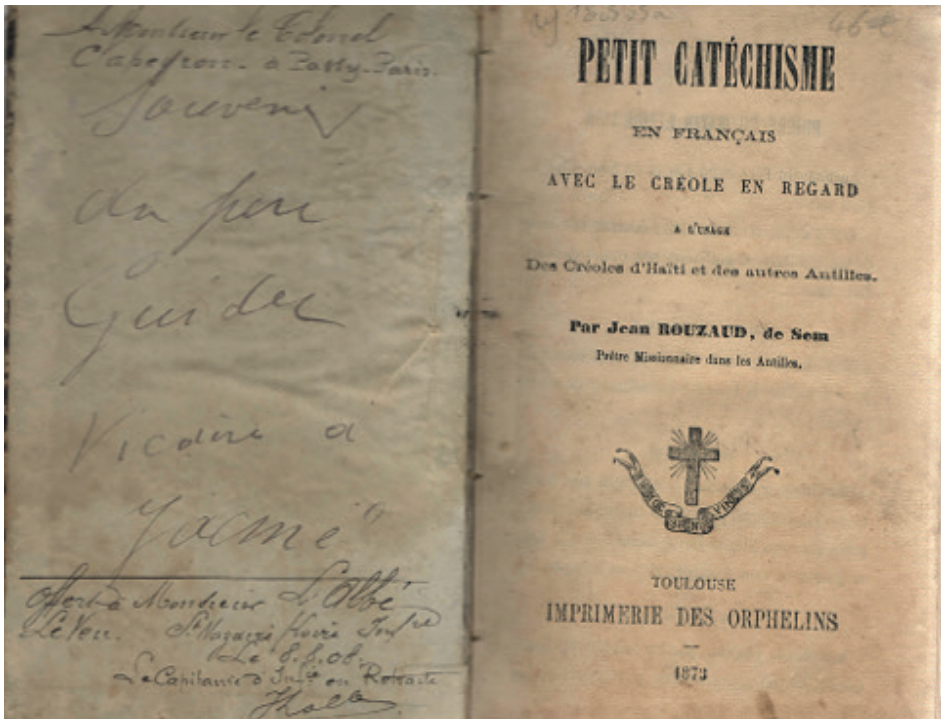 A Monsieur le Colonel
Clapeyron. à Passy-Paris.
Souvenir
du père
Guider
Vicaire à
Jacmel
offert à Monsieur L'Abbé
Le Veu. St Nazaire Loire Infre
Le 8.8.08.
Le Capitaine d'Infie en Retraite
46 €
PETIT CATÉCHISME
EN FRANÇAIS
AVEC LE CRÉOLE EN REGARD
A L'USAGE
Des Créoles d'Haïti et des autres Antilles.
Par Jean ROUZAUD, de Sem
Prêtre Missionnaire dans les Antilles.
TOULOUSE
IMPRIMERIE DES ORPHELINS
1873